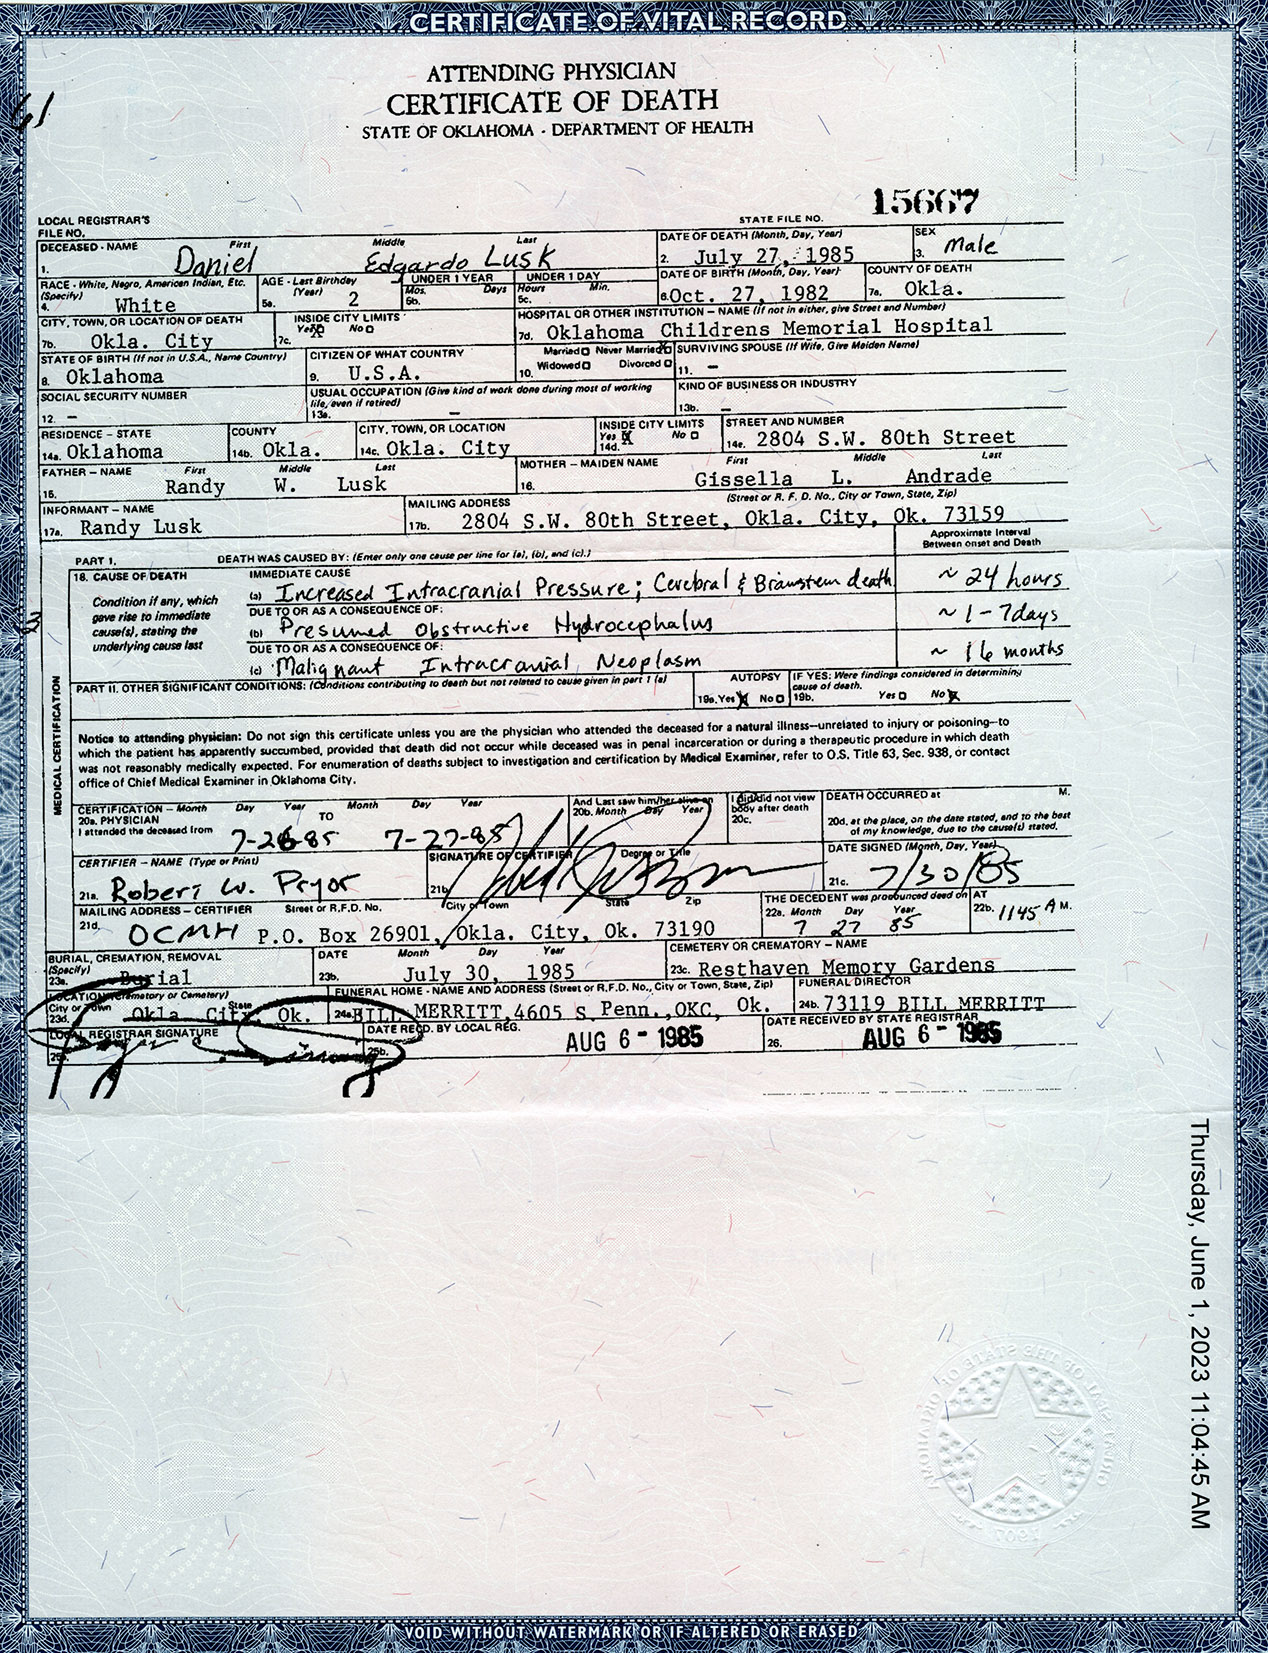 CERTIFICATE OF VITAL RECORD
ATTENDING PHYSICIAN
CERTIFICATE OF DEATH
STATE OF OKLAHOMA - DEPARTMENT OF HEALTH
61
LOCAL REGISTRAR'S
FILE NO.
STATE FILE NO. 15667
DECEASED - NAME First Middle Last
1. Daniel Edgardo Lusk
DATE OF DEATH (Month, Day, Year)
2. July 27, 1985
SEX
3. Male
RACE - White, Negro, American Indian, Etc.
(Specify)
4. White
AGE - Last Birthday
(Year)
5a. 2
UNDER 1 YEAR
Mos. Days
5b.
UNDER 1 DAY
Hours Min.
5c.
DATE OF BIRTH (Month, Day, Year)
6. Oct. 27, 1982
COUNTY OF DEATH
7a. Okla.
CITY, TOWN, OR LOCATION OF DEATH
7b. Okla. City
INSIDE CITY LIMITS
7c. Yes X No
HOSPITAL OR OTHER INSTITUTION - NAME (If not in either, give Street and Number)
7d. Oklahoma Childrens Memorial Hospital
STATE OF BIRTH (If not in U.S.A., Name Country)
8. Oklahoma
CITIZEN OF WHAT COUNTRY
9. U.S.A.
Married Never Married X
10. Widowed Divorced
SURVIVING SPOUSE (If Wife, Give Maiden Name)
11. -
SOCIAL SECURITY NUMBER
12. -
USUAL OCCUPATION (Give kind of work done during most of working
life, even if retired)
13a. -
KIND OF BUSINESS OR INDUSTRY
13b. -
RESIDENCE - STATE
14a. Oklahoma
COUNTY
14b. Okla.
CITY, TOWN, OR LOCATION
14c. Okla. City
INSIDE CITY LIMITS
Yes X No
14d.
STREET AND NUMBER
14e. 2804 S.W. 80th Street
FATHER - NAME First Middle Last
15. Randy W. Lusk
MOTHER - MAIDEN NAME First Middle Last
16. Gissella L. Andrade
INFORMANT - NAME
17a. Randy Lusk
MAILING ADDRESS (Street or R. F. D. No., City or Town, State, Zip)
17b. 2804 S.W. 80th Street, Okla. City, Ok. 73159
PART 1. DEATH WAS CAUSED BY: (Enter only one cause per line for (a), (b), and (c).)
Approximate Interval
Between onset and Death
18. CAUSE OF DEATH
Condition if any, which
gave rise to immediate
cause(s), stating the
underlying cause last
IMMEDIATE CAUSE
(a) Increased Intracranial Pressure; Cerebral & Brainstem death ~ 24 hours
DUE TO OR AS A CONSEQUENCE OF:
(b) Presumed Obstructive Hydrocephalus ~ 1-7 days
DUE TO OR AS A CONSEQUENCE OF:
(c) Malignant Intracranial Neoplasm ~ 16 months
PART II. OTHER SIGNIFICANT CONDITIONS: (Conditions contributing to death but not related to cause given in part 1 (a)
AUTOPSY
19a. Yes X No
IF YES: Were findings considered in determining
cause of death.
19b. Yes No X
MEDICAL CERTIFICATION
Notice to attending physician: Do not sign this certificate unless you are the physician who attended the deceased for a natural illness—unrelated to injury or poisoning—to
which the patient has apparently succumbed, provided that death did not occur while deceased was in penal incarceration or during a therapeutic procedure in which death
was not reasonably medically expected. For enumeration of deaths subject to investigation and certification by Medical Examiner, refer to O.S. Title 63, Sec. 938, or contact
office of Chief Medical Examiner in Oklahoma City.
CERTIFICATION - Month Day Year Month Day Year
20a. PHYSICIAN TO
I attended the deceased from
7-26-85 7-27-85
And Last saw him/her alive on
20b. Month Day Year
I did/did not view
body after death
20c.
DEATH OCCURRED at M.
20d. at the place, on the date stated, and to the best
of my knowledge, due to the cause(s) stated.
CERTIFIER - NAME (Type or Print)
21a. Robert W. Pryor
SIGNATURE OF CERTIFIER Degree or Title
21b.
DATE SIGNED (Month, Day, Year)
21c. 7/30/85
MAILING ADDRESS - CERTIFIER Street or R.F.D. No. City or Town State Zip
21d. OCMH P.O. Box 26901, Okla. City, Ok. 73190
THE DECEDENT was pronounced dead on
22a. Month Day Year
7 27 85
AT
22b. 1145 A M.
BURIAL, CREMATION, REMOVAL
(Specify)
23a. Burial
DATE Month Day Year
23b. July 30, 1985
CEMETERY OR CREMATORY - NAME
23c. Resthaven Memory Gardens
LOCATION (Crematory or Cemetery)
City or Town State
23d. Okla. City, Ok.
FUNERAL HOME - NAME AND ADDRESS (Street or R.F.D. No., City or Town, State, Zip)
24a. BILL MERRITT, 4605 S. Penn., OKC, Ok.
FUNERAL DIRECTOR
24b. 73119 BILL MERRITT
LOCAL REGISTRAR SIGNATURE
25a.
DATE RECD. BY LOCAL REG.
25b. AUG 6 - 1985
DATE RECEIVED BY STATE REGISTRAR
26. AUG 6 - 1985
Thursday, June 1, 2023 11:04:45 AM
VOID WITHOUT WATERMARK OR IF ALTERED OR ERASED